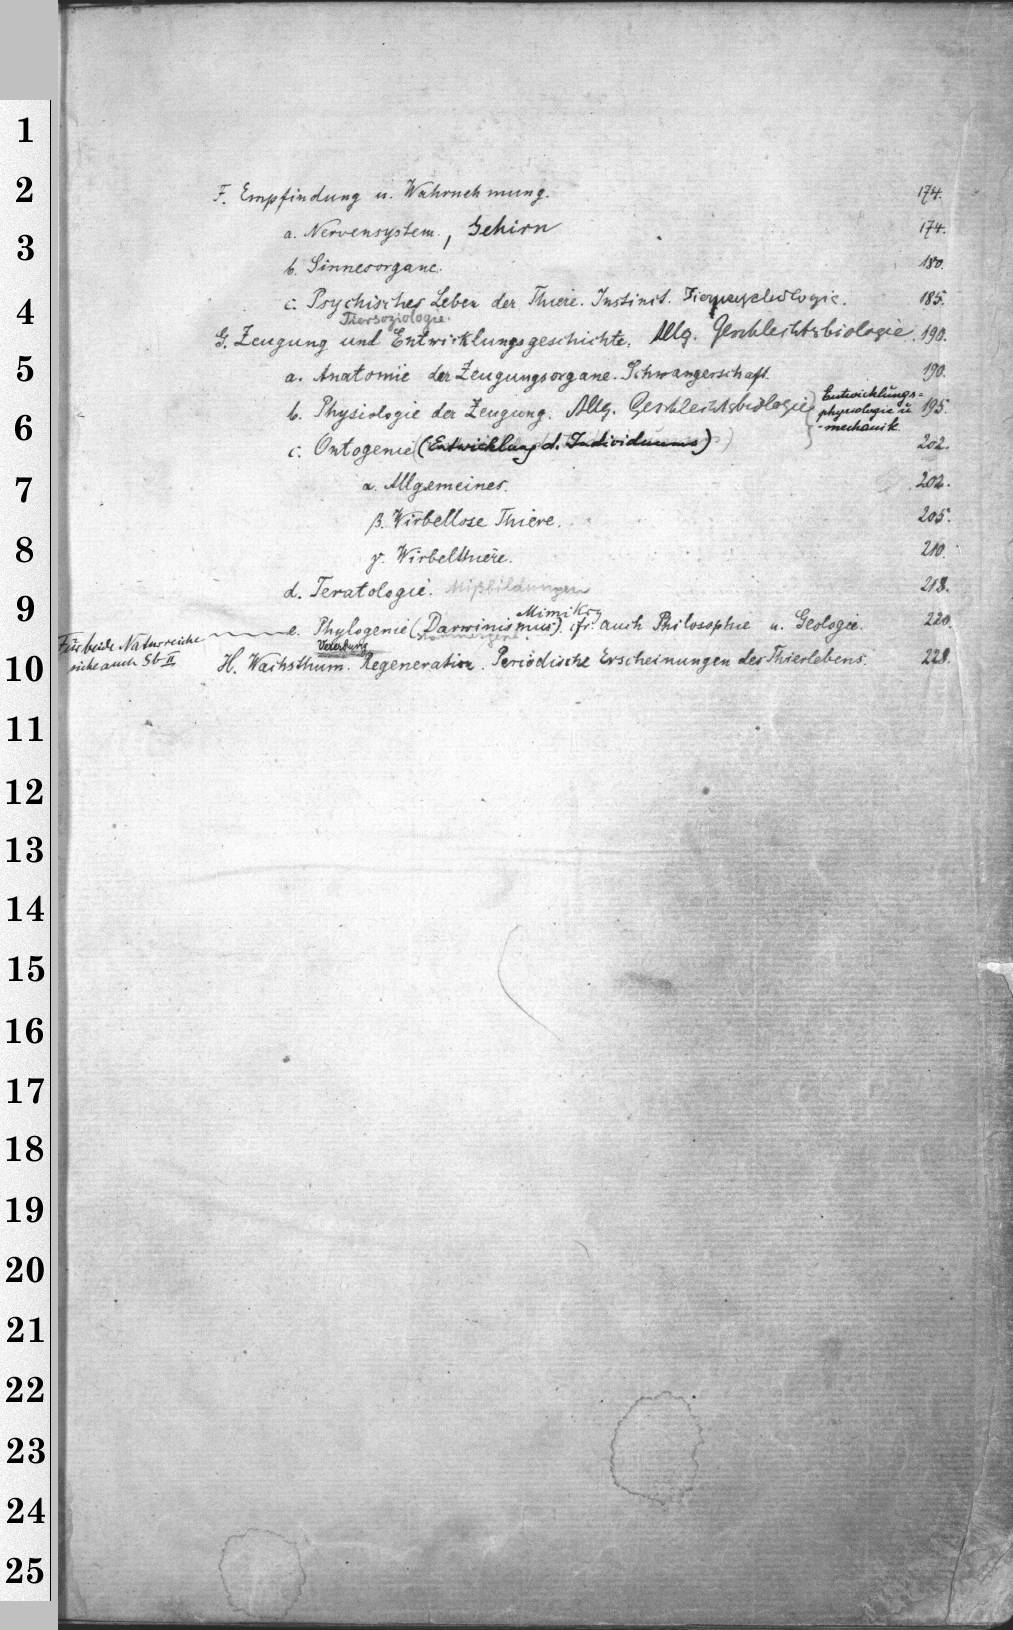 1
2
3
4
5
6
7
8
9
10
11
12
13
14
15
16
17
18
19
20
21
22
23
24
25
F. Empfindung u. Wahrnehmung. 174.
a. Nervensystem, Gehirn 174.
b. Sinnesorgane. 180.
c. Psychisches Leben der Thiere. Instinct. Tierpsychologie. 185.
Tiersoziologie.
G. Zeugung und Entwicklungsgeschichte. Allg. Geschlechtsbiologie. 190.
a. Anatomie der Zeugungsorgane. Schwangerschaft. 190.
b. Physiologie der Zeugung. Allg. Geschlechtsbiologie 195.
Entwicklungs=
physiologie u
-mechanik.
c. Ontogenie (Entwicklung d. Individuums) 202.
α. Allgemeines. 202.
β. Wirbellose Thiere. 205.
γ. Wirbelthiere. 210.
d. Teratologie. Mißbildungen 218.
Mimikry
e. Phylogenie (Darwinismus). cfr. auch Philosophie u. Geologie. 220.
Für beide Naturreiche
siehe auch Sb II
Vererbung
H. Wachsthum. Regeneration. Periodische Erscheinungen des Thierlebens. 228.